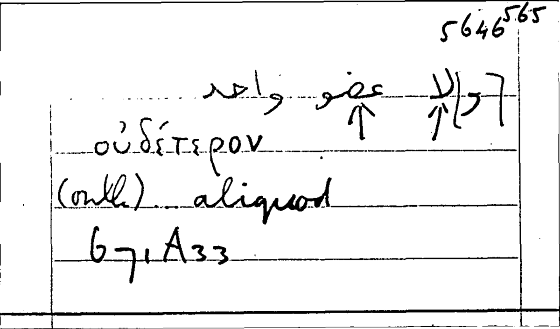 5646 565
[و]لا عضو واحد
οὐδέτερον
(om. Ch.) ... aliquod
671A33